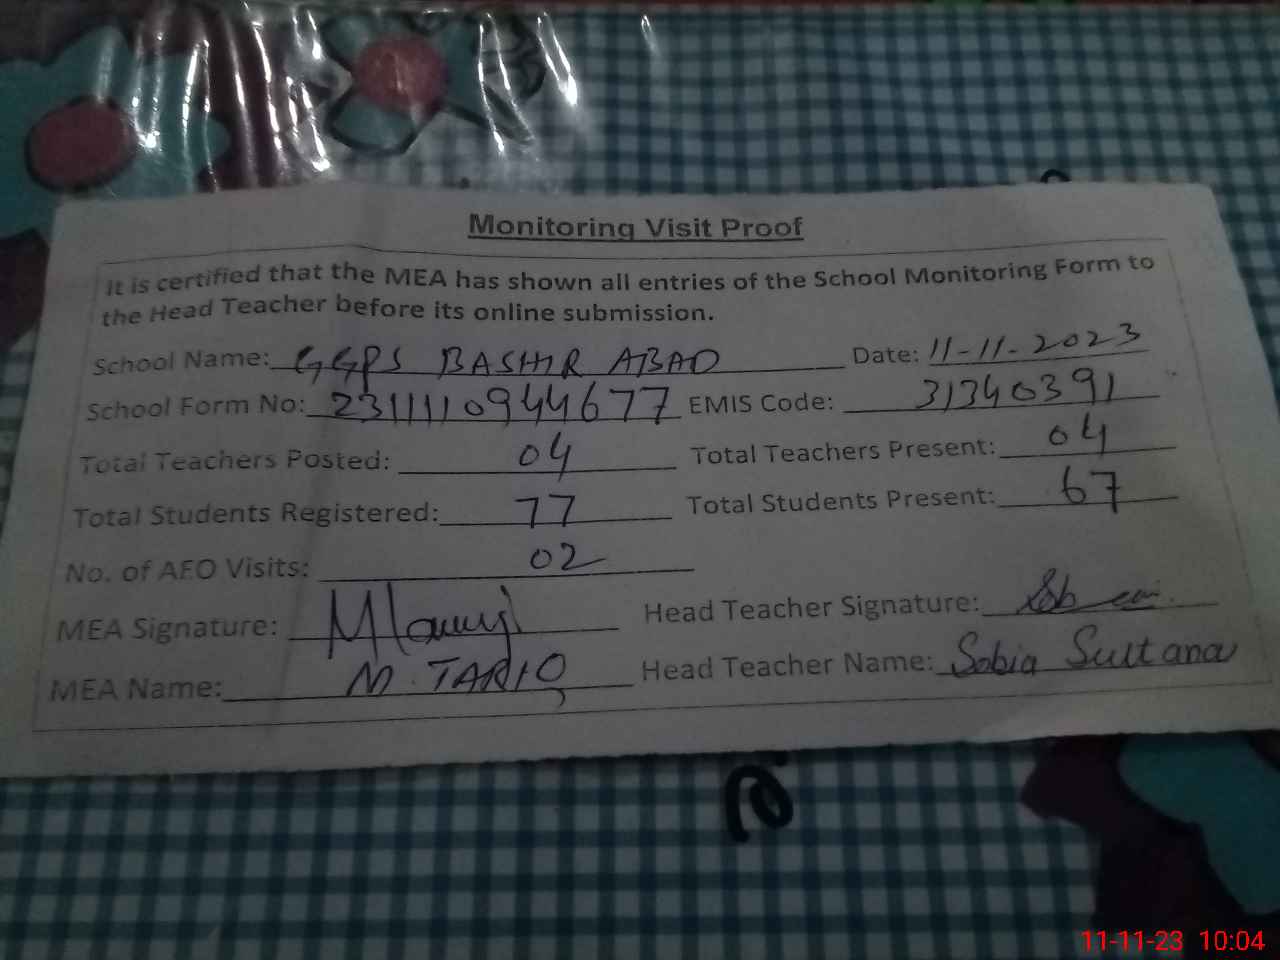 Monitoring Visit Proof
It is certified that the MEA has shown all entries of the School Monitoring Form to
the Head Teacher before its online submission.
School Name: GGPS BASHIR ABAD Date: 11-11-2023
School Form No: 2311110944677 EMIS Code: 31340391
Total Teachers Posted: 04 Total Teachers Present: 04
Total Students Registered: 77 Total Students Present: 67
No. of AEO Visits: 02
MEA Signature: Head Teacher Signature:
MEA Name: M. TARIQ Head Teacher Name: Sobia Sultana
11-11-23 10:04